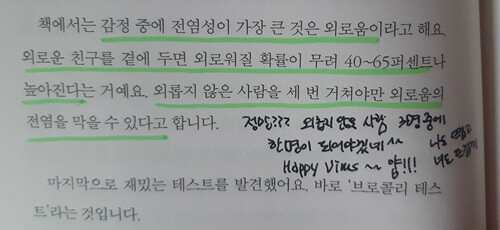 책에서는 감정 중에 전염성이 가장 큰 것은 외로움이라고 해요.
외로운 친구를 곁에 두면 외로워질 확률이 무려 40~65퍼센트나
높아진다는 거예요. 외롭지 않은 사람을 세 번 거쳐야만 외로움의
전염을 막을 수 있다고 합니다.
정말??? 외롭지 않은 사람 3명 중에
한명이 되어야겠네^^
나도
Happy Virus ~~ 얍!!!
너도
마지막으로 재밌는 테스트를 발견했어요. 바로 '브로콜리 테스
트'라는 것입니다.